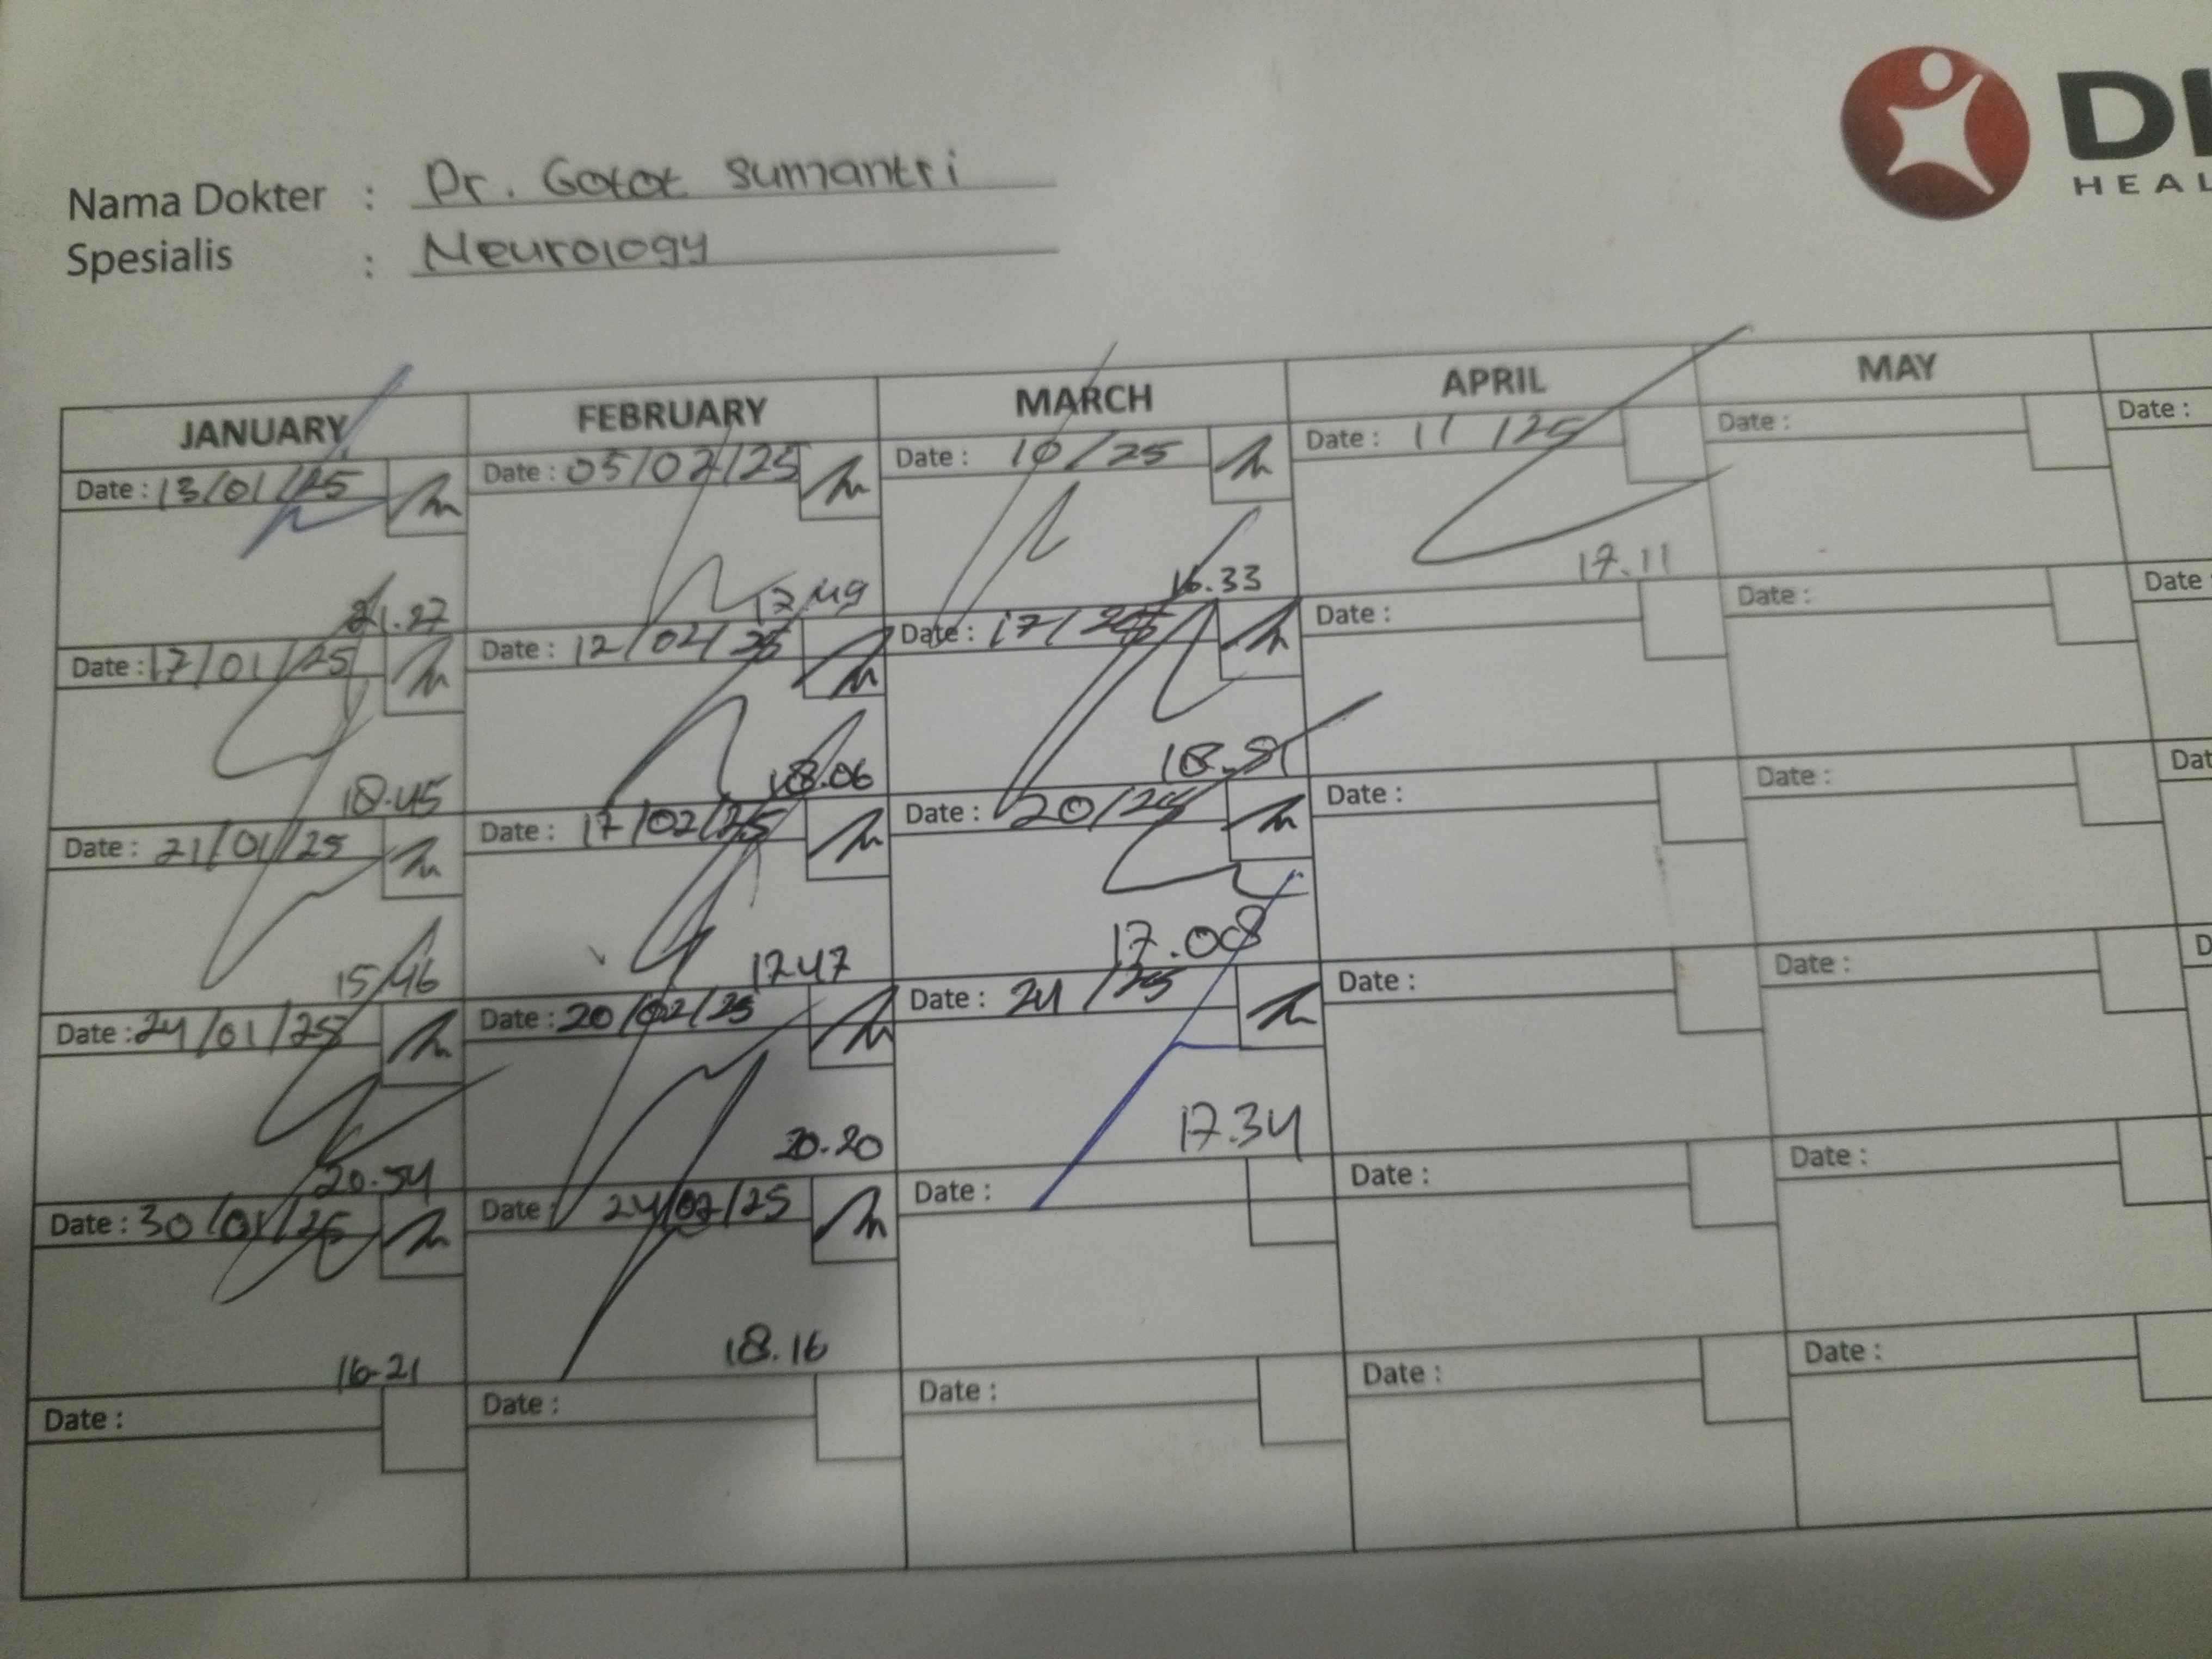 Nama Dokter : Dr. Gotot Sumantri
Spesialis : Neurology
DI
HEAL
JANUARY FEBRUARY MARCH APRIL MAY
Date : 13/01/25 Date : 05/02/25 Date : 10/25 Date : 11 /25 Date : Date :
21.27 17.49 16.33 17.11
Date : 17/01/25 Date : 12/02/25 Date : 17/25 Date : Date : Date
18.45 18.06
Date : 21/01/25 Date : 17/02/25 Date : 20/25 Date : Date : Dat
15.46 17.47 17.08
Date : 24/01/25 Date : 20/02/25 Date : 24 /25 Date : Date : D
20.54 20.20 17.34
Date : 30/01/25 Date : 24/02/25 Date : Date : Date :
16.21 18.16
Date : Date : Date : Date : Date :